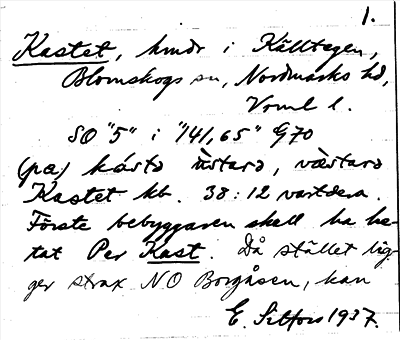 1.
Kastet, hmdr i Källtegen,
Blomskogs sn, Nordmarks hd,
Vrml l.
SO "5" i "141,65" G70
(pæ) kástə ùstarə, væ̀starə
Kastet kb. 38:12 vartdera.
Förste bebyggaren skall ha he-
tat Per Kast. Då stället lig-
ger strax NO Borgåsen, kan
E. Sitfors 1937.